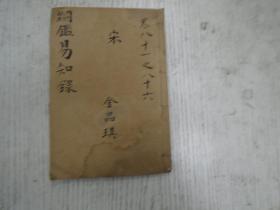 卷八十一之八十六
宋
金品琪
綱鑑易知錄